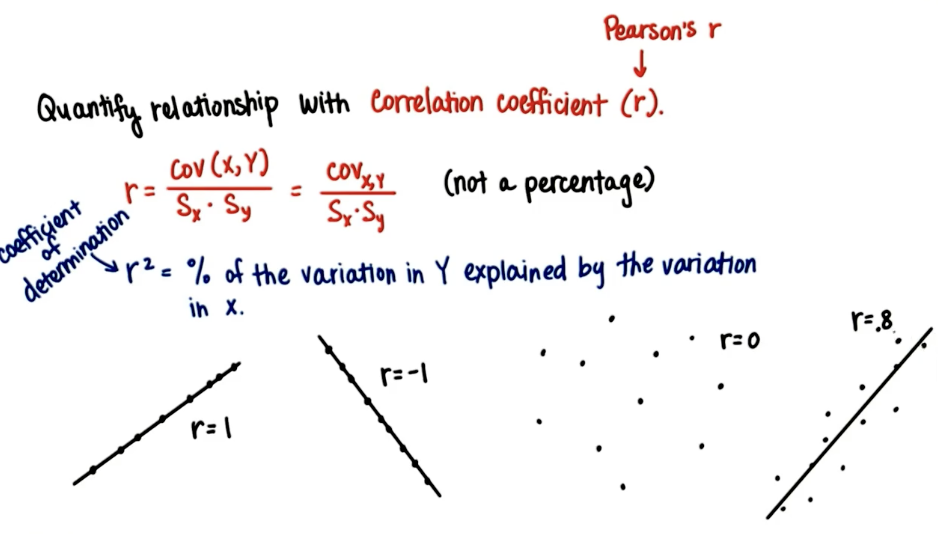 Pearson's r
↓
Quantify relationship with Correlation coefficient (r).
r = Cov(X,Y) / Sx · Sy = COVX,Y / Sx·Sy (not a percentage)
coefficient
of
determination
r² = % of the variation in Y explained by the variation
in x.
r=1
r=-1
r=0
r=.8